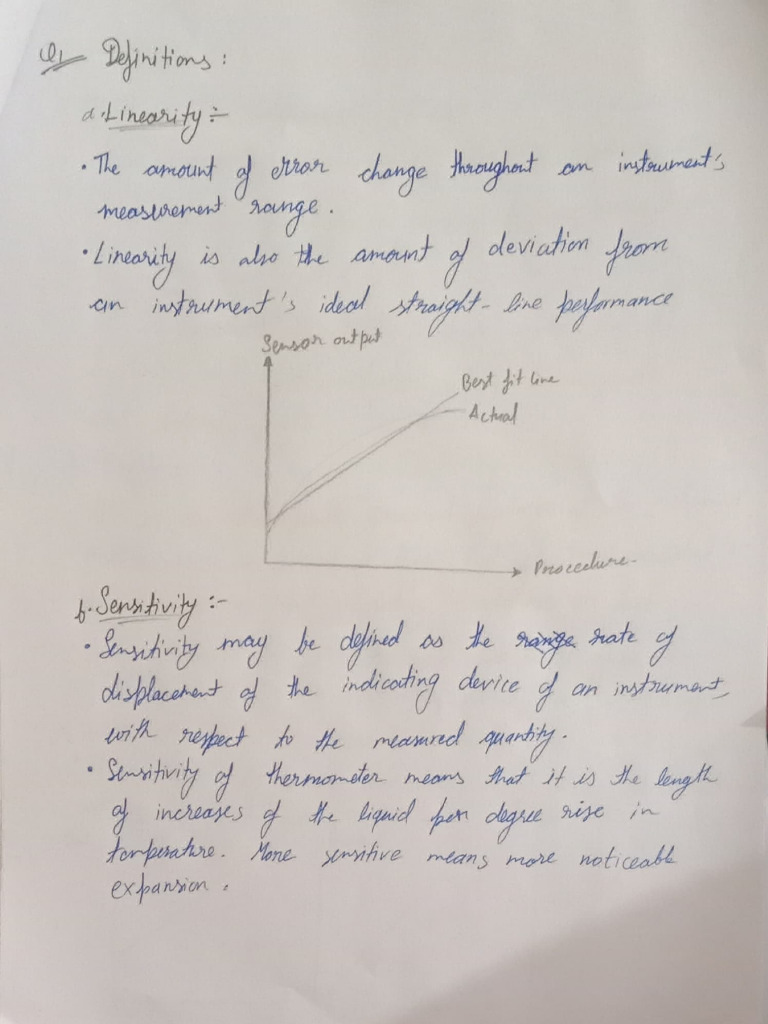 Q1 Definitions :
a. Linearity :-
• The amount of error change throughout an instrument's
measurement range.
• Linearity is also the amount of deviation from
an instrument's ideal straight-line performance
Sensor output
Best fit line
Actual
Procedure
b. Sensitivity :-
• Sensitivity may be defined as the range rate of
displacement of the indicating device of an instrument,
with respect to the measured quantity.
• Sensitivity of thermometer means that it is the length
of increases of the liquid per degree rise in
temperature. More sensitive means more noticeable
expansion.